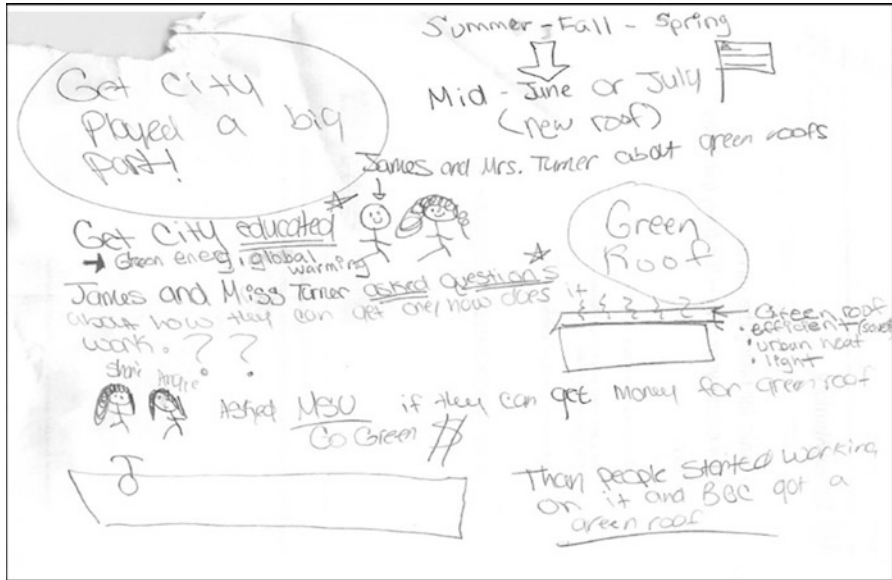 Summer - Fall - Spring
Get City
Played a big
part!
Mid - June or July
(new roof)
James and Mrs. Turner about green roofs
Get City educated
Green energy · global
warming
James and Miss Turner asked questions
about how they can get one/how does it
work. ? ?
Green
Roof
Green roof
· efficient
· urban heat
· light
Asked MSU if they can get money for green roof
Go Green $
Than people started working
on it and BGC got a
green roof